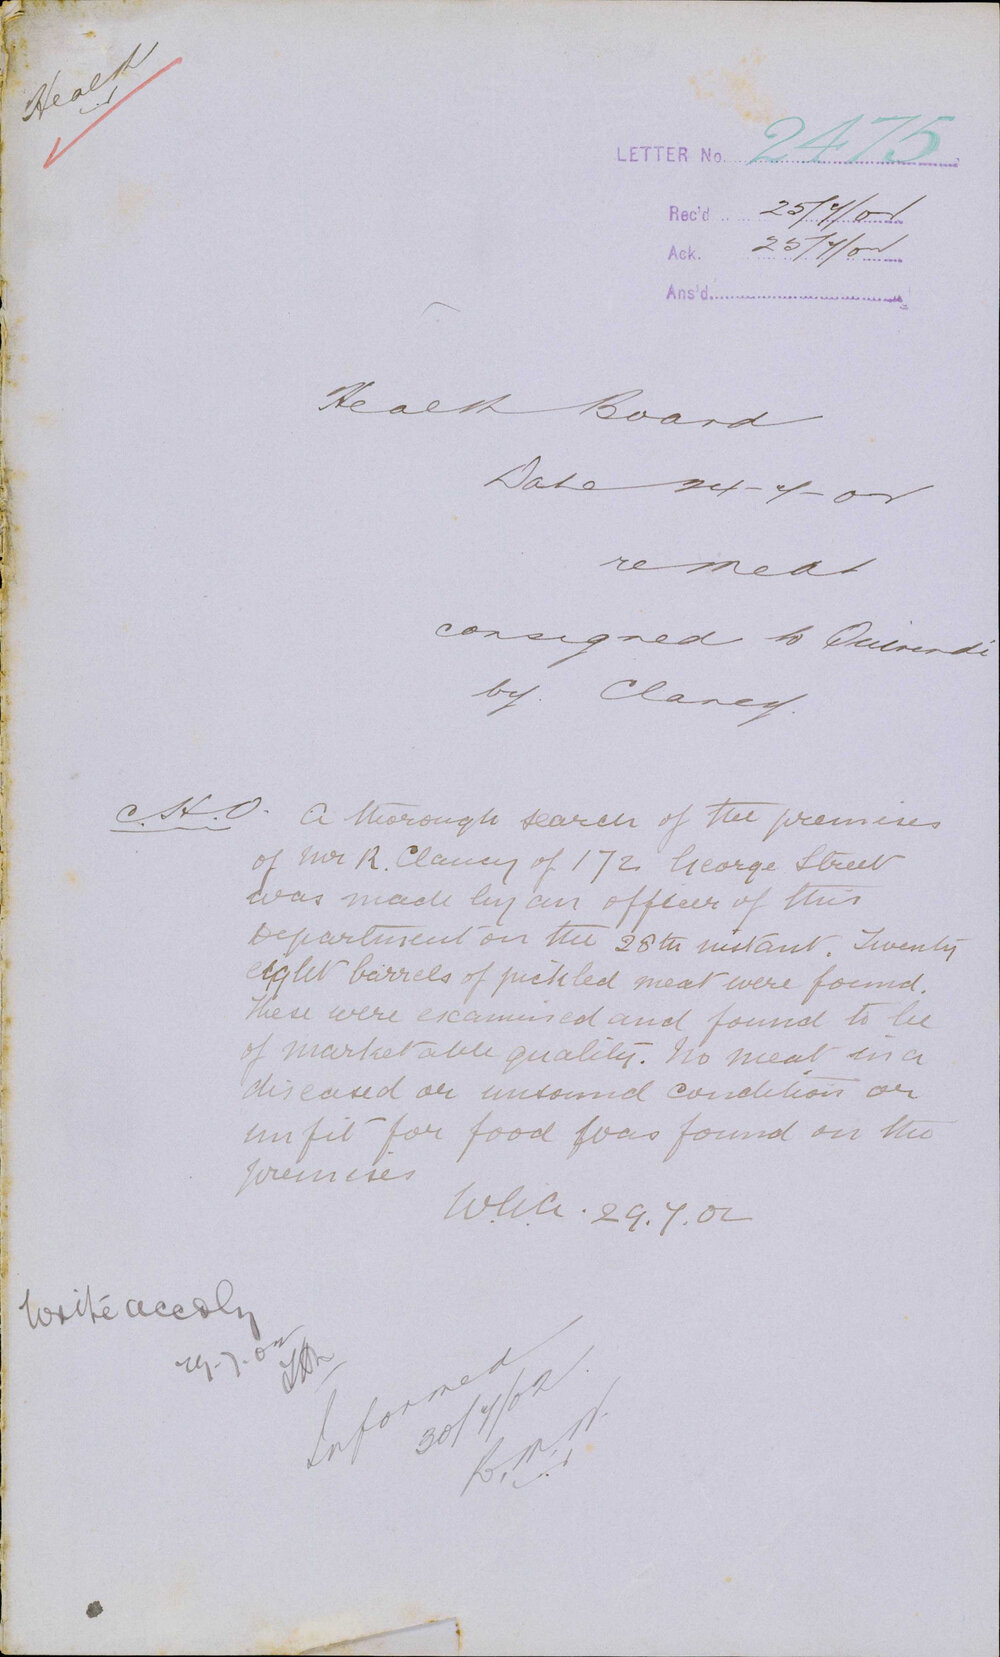 Health
LETTER No. 2475
Rec'd 25/7/02
Ack. 25/7/02
Ans'd.
Health Board
Date 24-7-02
re meat
consigned to Quirindi
by Clancy.
C.H.O. A thorough search of the premises
of Mr R. Clancy of 172 George Street
was made by an officer of this
Department on the 28th instant. Twenty
eight barrels of pickled meat were found.
These were examined and found to be
of marketable quality. No meat in a
diseased or unsound condition or
unfit for food was found on the
premises
29.7.02
Write accdly
29.7.02
Informed
30/7/02